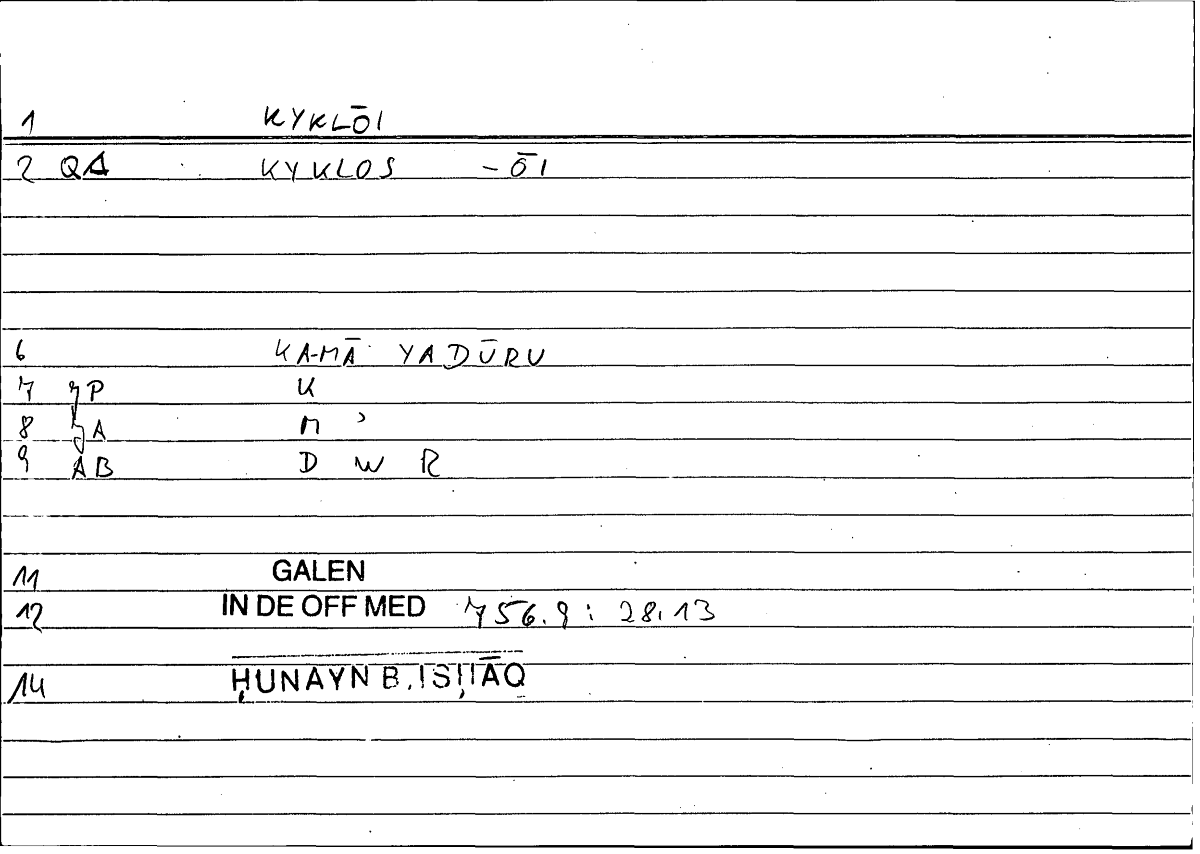 1 KYKLŌI
2 QA KYKLOS -ŌI
6 KA-MĀ YADŪRU
7 P K
8 A M ʾ
9 AB D W R
11 GALEN
12 IN DE OFF MED 756.9 : 28.13
14 ḤUNAYN B. ISḤĀQ